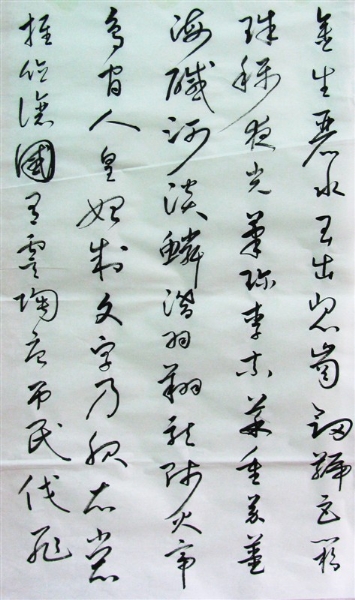 金生麗水玉出崑崗劍號巨闕
珠稱夜光果珍李柰菜重芥薑
海鹹河淡鱗潛羽翔龍師火帝
鳥官人皇始制文字乃服衣裳
推位讓國有虞陶唐弔民伐罪